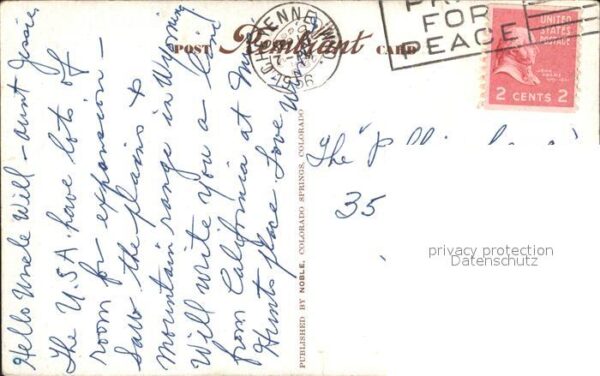 POST Rembrant CARD
CHEYENNE WYO
1956
PRAY
FOR
PEACE
UNITED
STATES
POSTAGE
2 CENTS 2
Hello Uncle Will – Aunt Jessie,
The U.S.A. have lots of
room for expansion –
Saw the plains &
mountain range in Wyoming
Will write you a line
from California at Mr
Hunts place Love
PUBLISHED BY NOBLE, COLORADO SPRINGS, COLORADO
The
35
privacy protection
Datenschutz